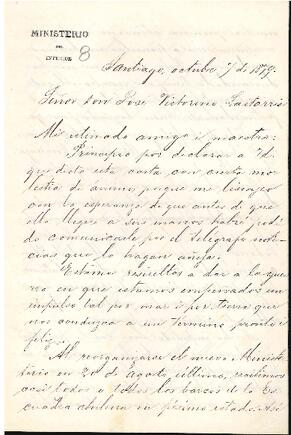 MINISTERIO
DEL
INTERIOR
8
Santiago, octubre 7 de 1879.
Señor don José Victorino Lastarria
Mi estimado amigo i maestro:
Principio por declarar a Ud.
que dicto esta carta con cierta mo-
lestia de ánimo, porque me lisonjeo
con la esperanza de que antes de que
ella llegue a sus manos habré po-
dido comunicarle por el telégrafo noti-
cias que la hagan añeja.
Estamos resueltos a dar a la gue-
rra en que estamos empeñados un
impulso tal por mar i por tierra que
nos conduzca a un término pronto i
feliz.
Al reorganizarse el nuevo Ministe-
rio en 20 de Agosto último, recibimos
casi todos o todos los barcos de la Es-
cuadra chilena en pésimo estado. Así